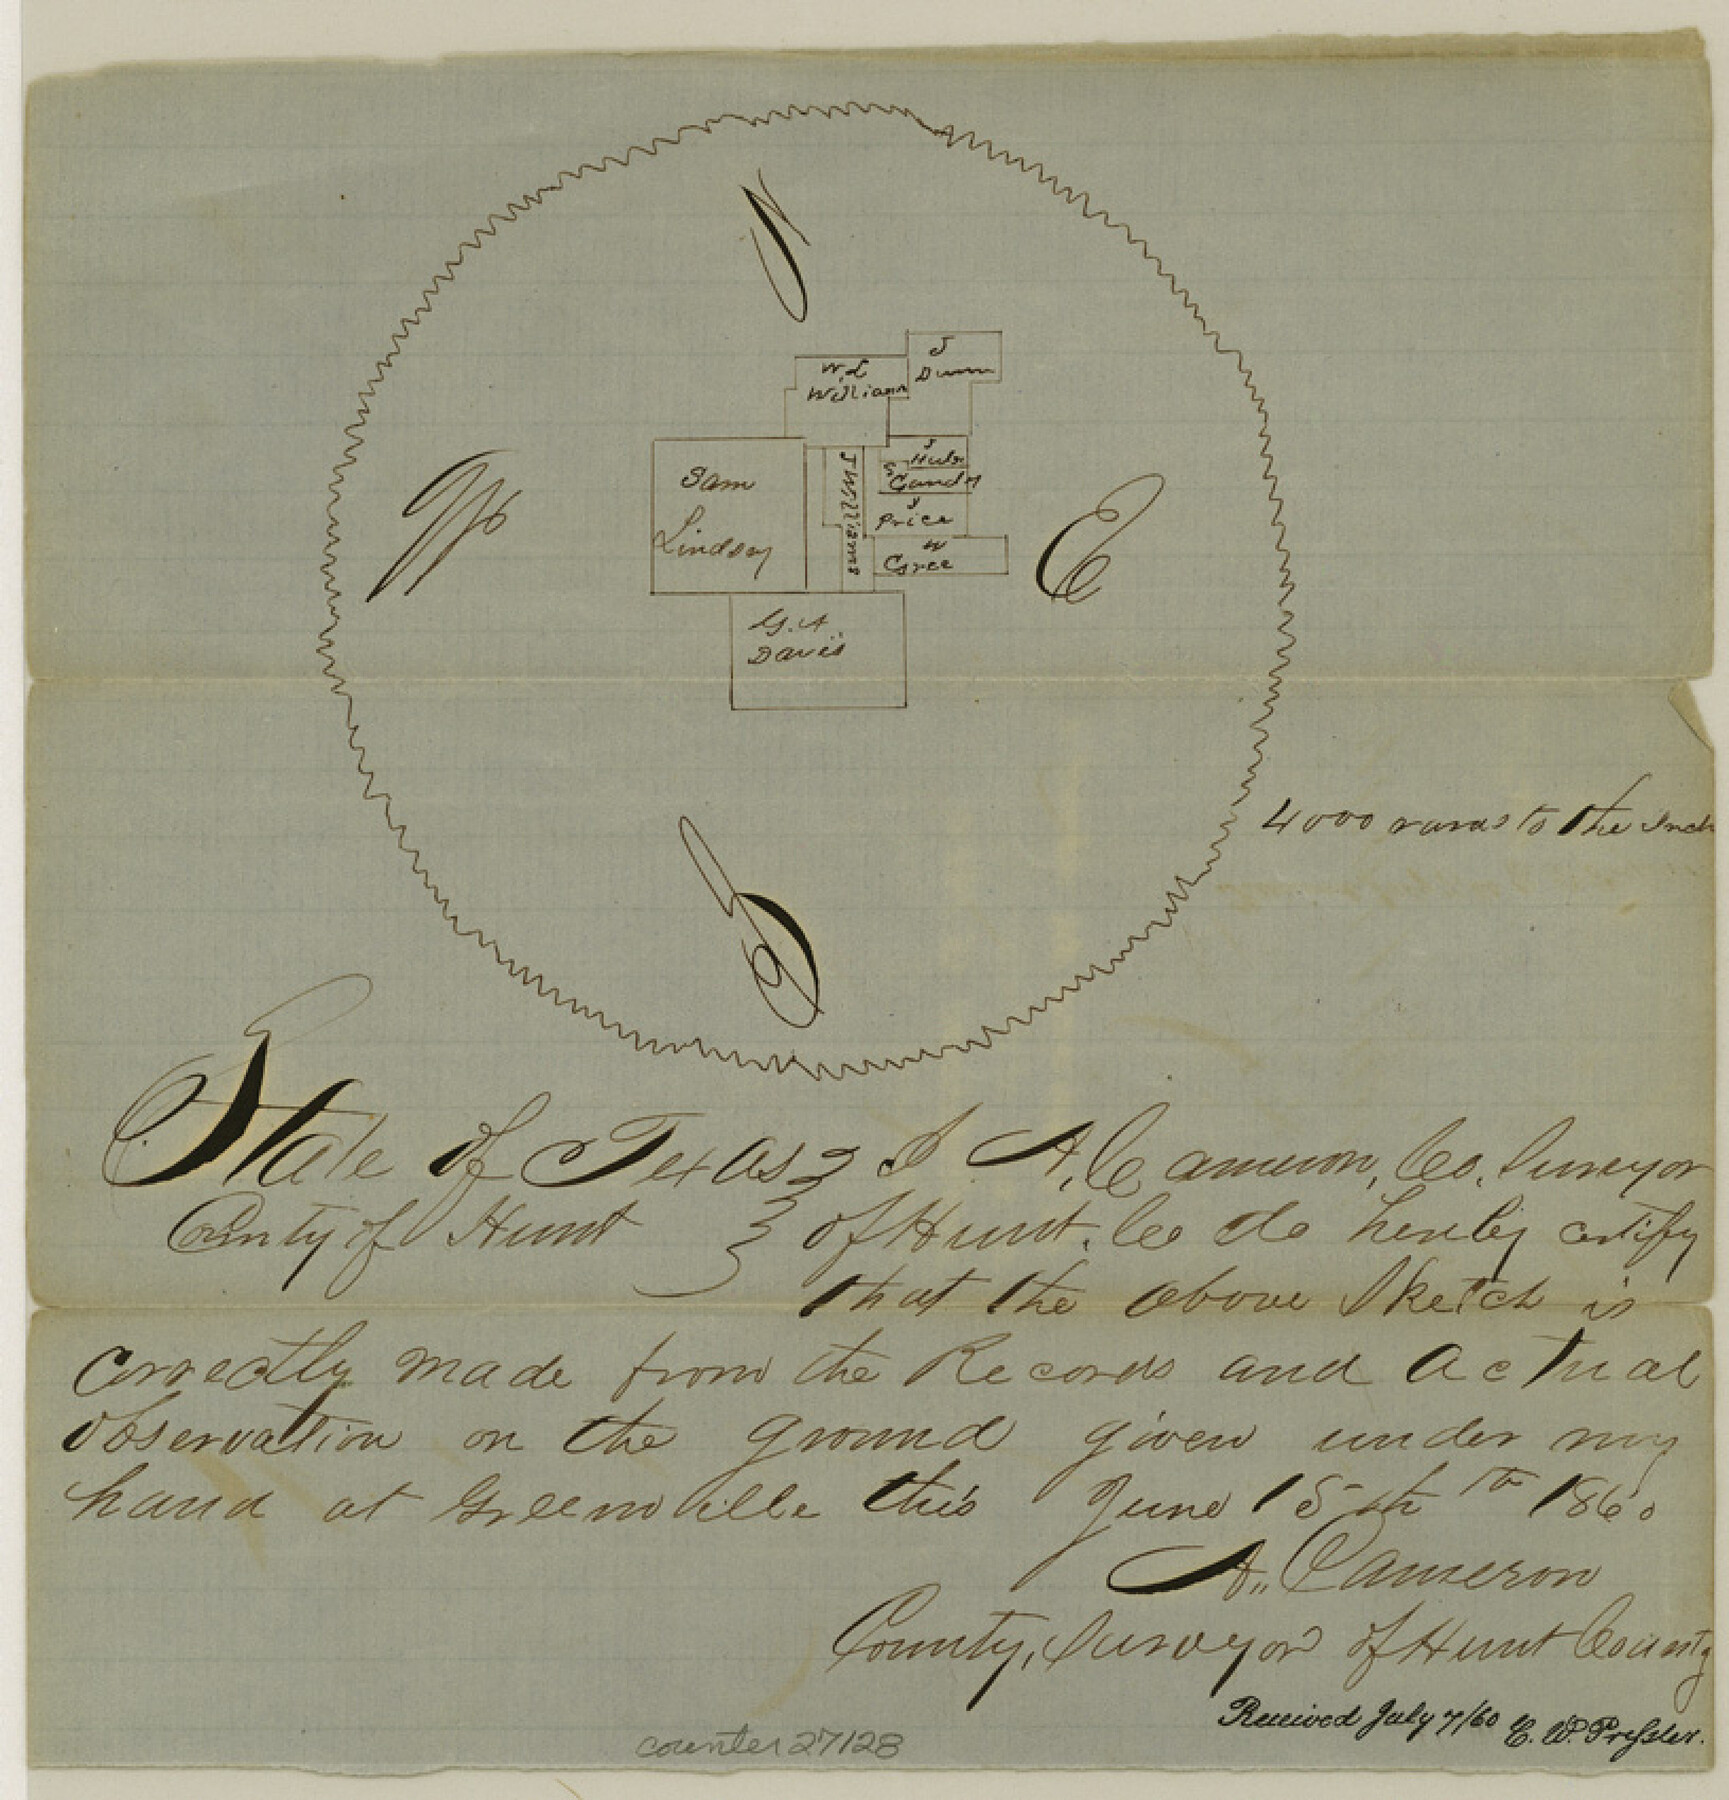 N
J
Dunn
W. L
Williams
J
Huls
S
Gandy
J
Price
W
Gree
J Williams
Sam
Lindsay
W
E
G. A
Davis
S
4000 varas to the Inch
State of Texas I A, Cameron, Co. Surveyor
County of Hunt of Hunt. Co do hereby certify
that the above Sketch is
correctly made from the Records and Actual
observation on the ground given under my
hand at Greenville this June 15th 1860
A.. Cameron
County, Surveyor of Hunt County
Received July 7/60 E. W. Pressler.
counter 27128